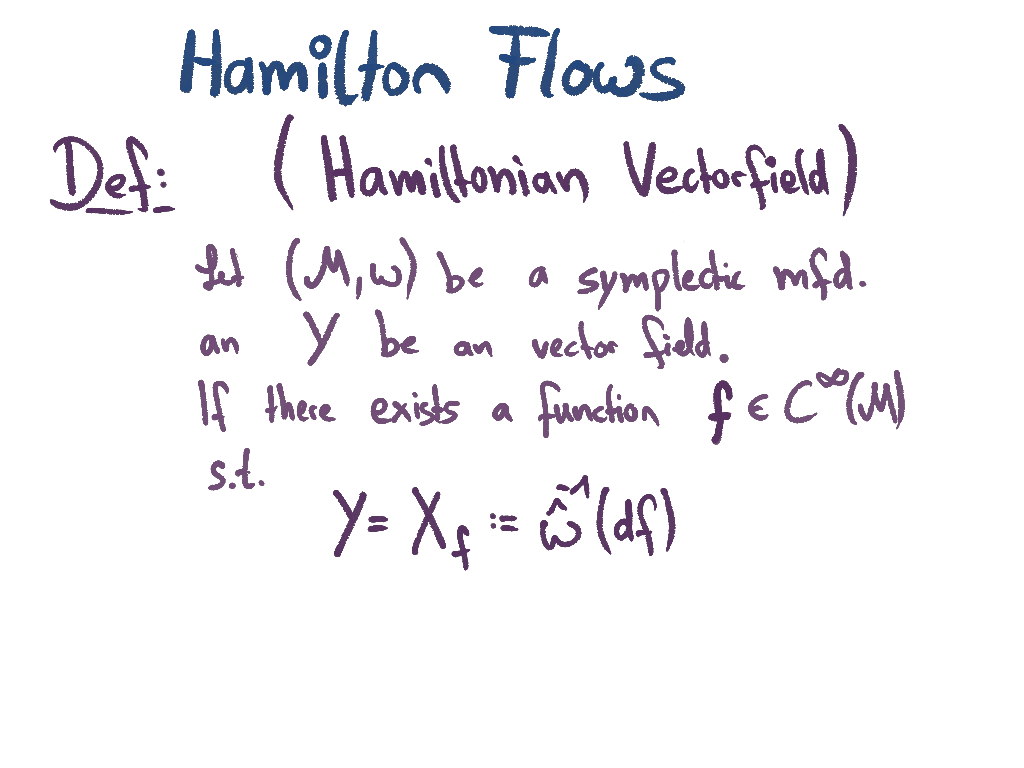 Hamilton Flows
Def: (Hamiltonian Vectorfield)
Let (M,ω) be a symplectic mfd.
an Y be an vector field.
If there exists a function f ∈ C^∞(M)
s.t.
Y = X_f := ω̂^{-1}(df)